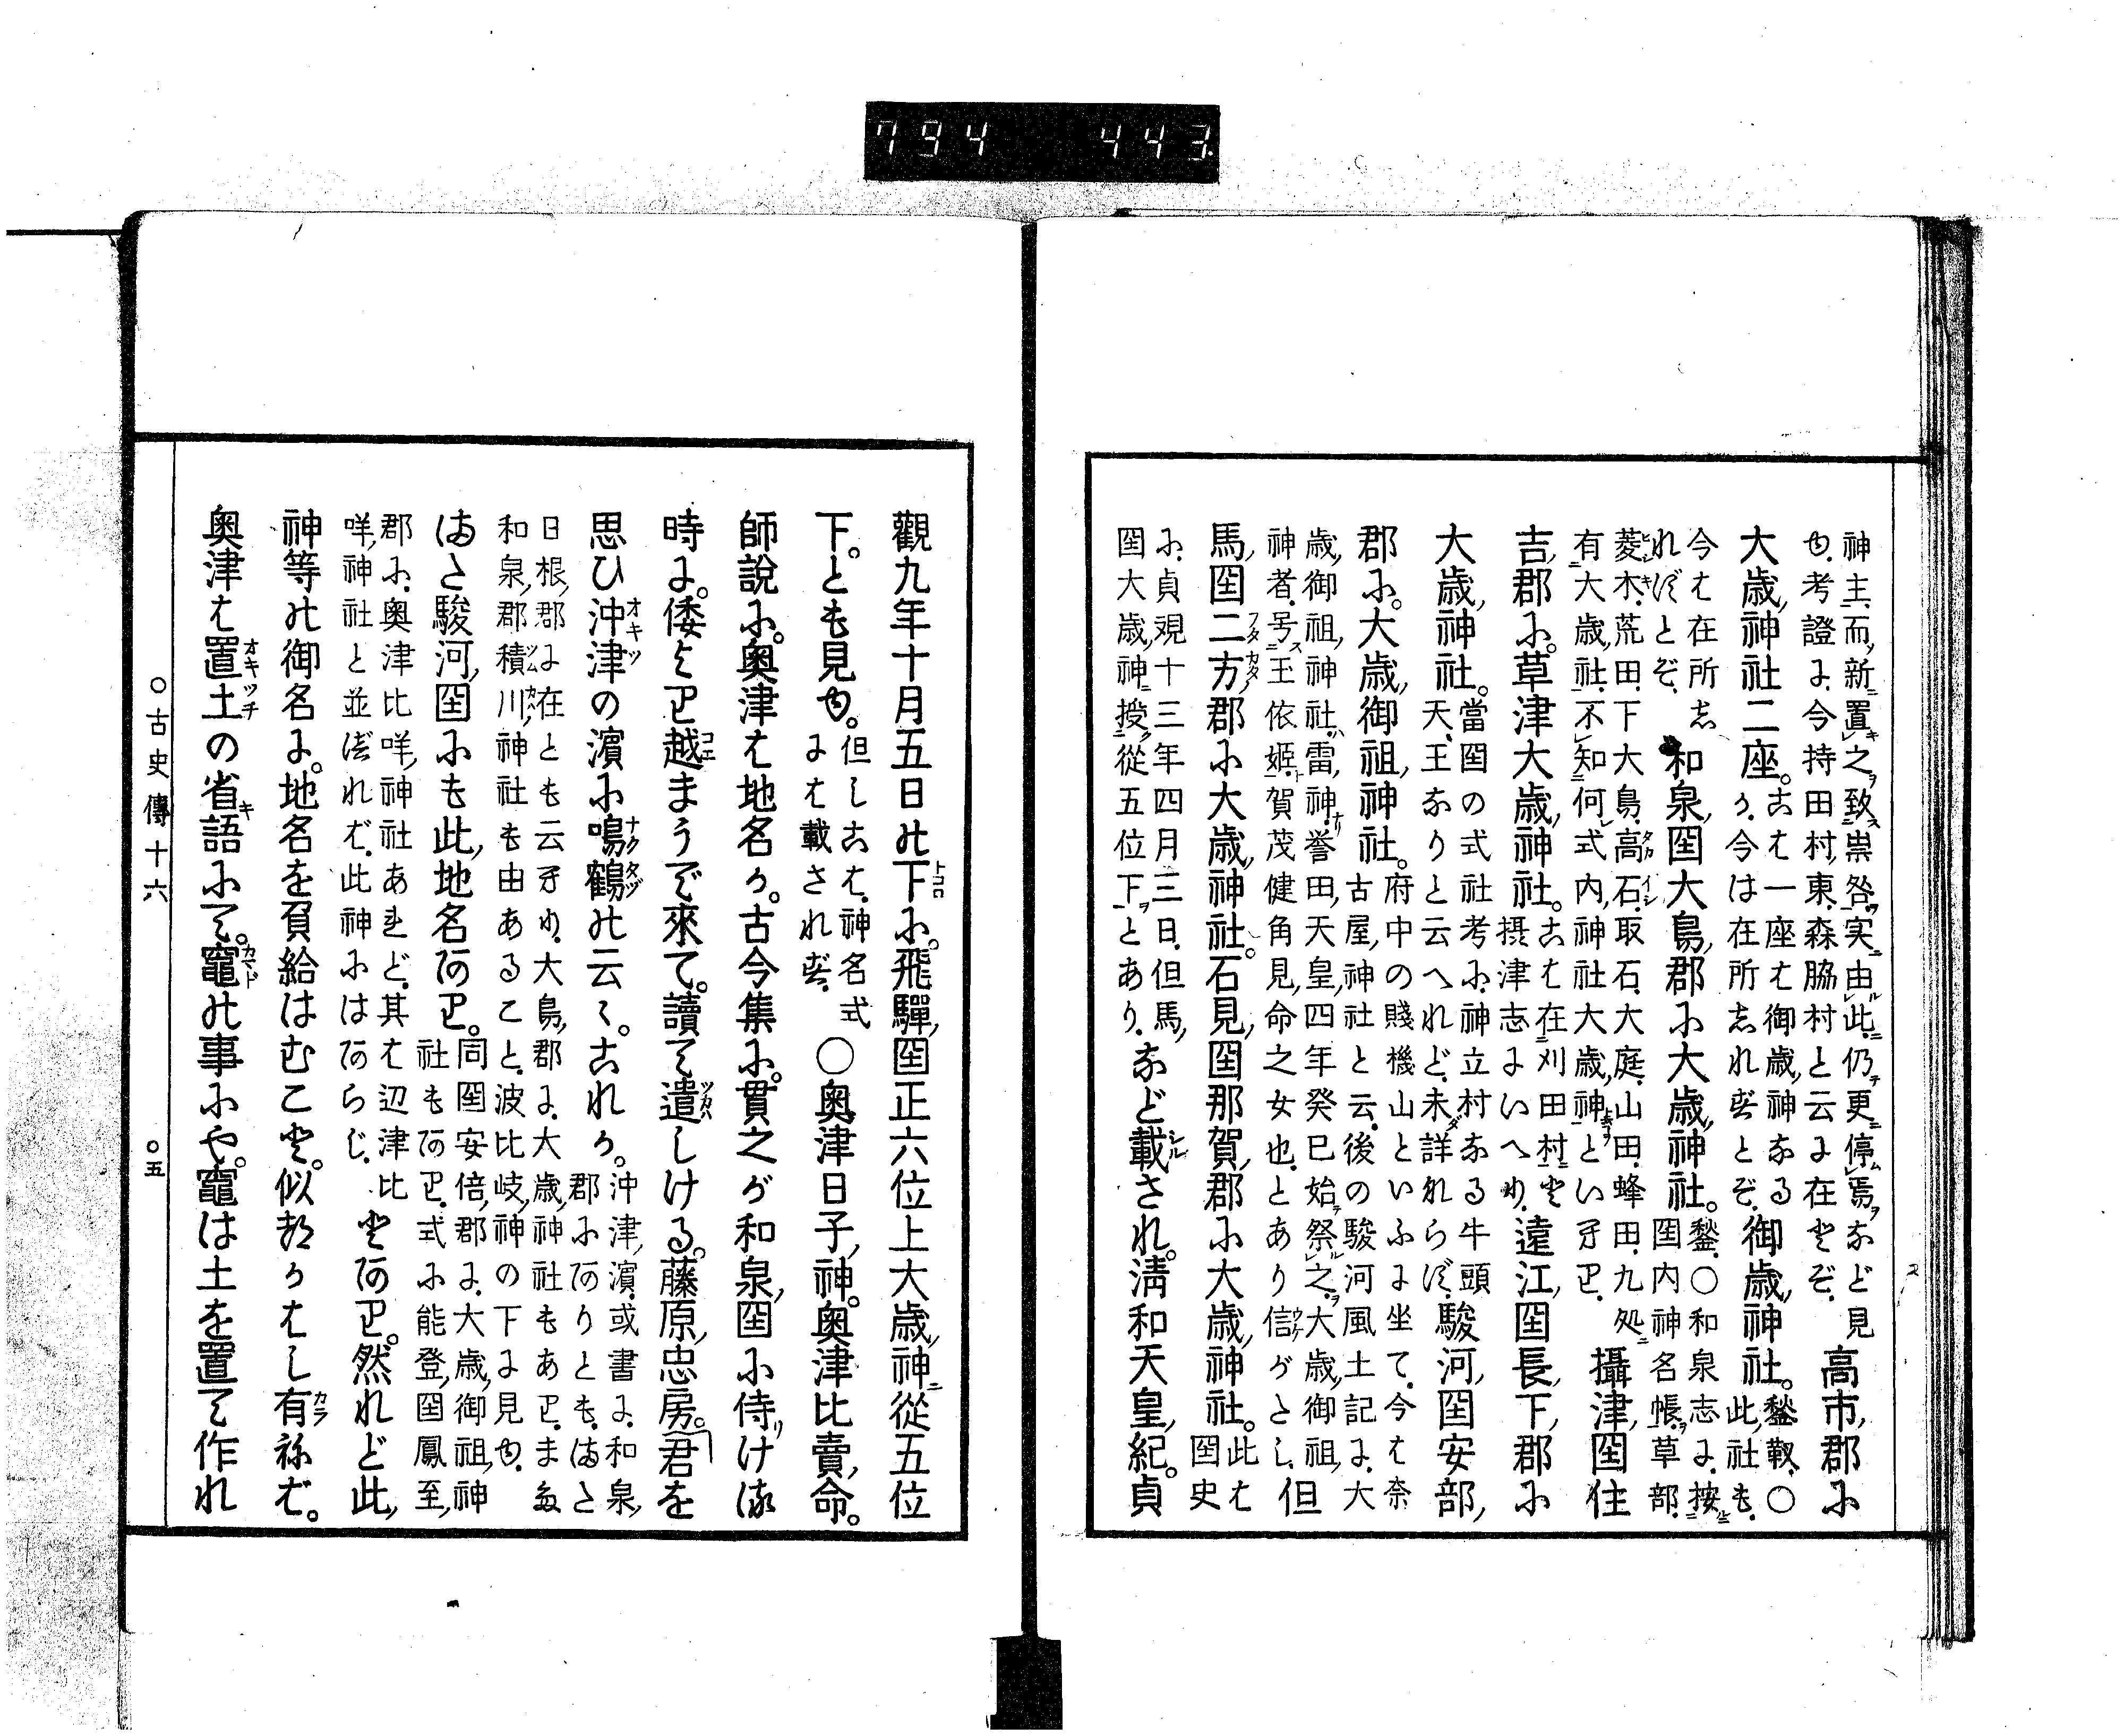 794 443
神主、而、新置之致祟咎、実由此、仍更停焉など見
ゆ、考證に、今持田村、東、森脇村と云に在とぞ、
高市、郡に
大歳、神社二座。
こは一座は御歳、神なる
か、今は在所しれずとぞ、
御歳、神社。
此、社も、
今は在所し
れずとぞ、
和泉、国大鳥、郡に大歳、神社。
○和泉志に、按
国内神名帳、草部、
菱木、荒田、下大鳥、高石、取石、大庭、山田、蜂田、九処
有大歳、社、不知何式内、神社大歳、神といへり、
攝津、国住
吉、郡に。草津大歳、神社。
こは在刈田村と
摂津志にいへり、
遠江、国長、下、郡に
大歳、神社。
當国の式社考に、神立村なる牛頭
天、王なりと云へれど、未詳れらず、
駿河、国安部、
郡に。大歳、御祖、神社。
府中の賤機山といふに坐て、今は奈
古屋、神社と云、後の駿河風土記に、大
歳、御祖、神社、雷、神、誉田、天皇、四年癸巳始祭之、大歳、御祖、
神者、号玉依姫、賀茂健角見、命之女也、とあり信がたし、
但
馬、国二方、郡に大歳、神社。石見、国那賀、郡に大歳、神社。
此は
国史
に、貞観十三年四月三日、但馬、
国大歳、神授從五位下とあり、
など載され。清和天皇、紀。貞
觀九年十月五日の下に。飛驒、国正六位上大歳、神從五位
下。とも見ゆ。
但しこは、神名式
には載されず、
○奥津日子、神。奥津比賣、命。
師說に。奥津は地名か。古今集に。貫之が和泉、国に侍ける
時に。倭より越まうで來て。讀て遣しける。藤原、忠房。君を
思ひ沖津の濱に鳴鶴の云〻。これか。
沖津、濱、或書に、和泉、
郡にありとも、また
日根、郡に在とも云り、大鳥、郡に、大歳、神社もあり、また
和泉、郡積川、神社も由あること、波比岐、神の下に見ゆ、
また駿河、国にも此、地名あり。
同国安倍、郡に、大歳、御祖、神
社もあり、式に能登、国鳳至、
郡に、奥津比咩、神社あれど、其は辺津比
咩、神社と並ばれば、此神にはあらじ、
とあり。然れど此、
神等の御名に。地名を負給はむこと。似つかはし有ねば。
奥津は置土の省語にて。竈の事にや。竈は土を置て作れ
○古史傳十六
○五